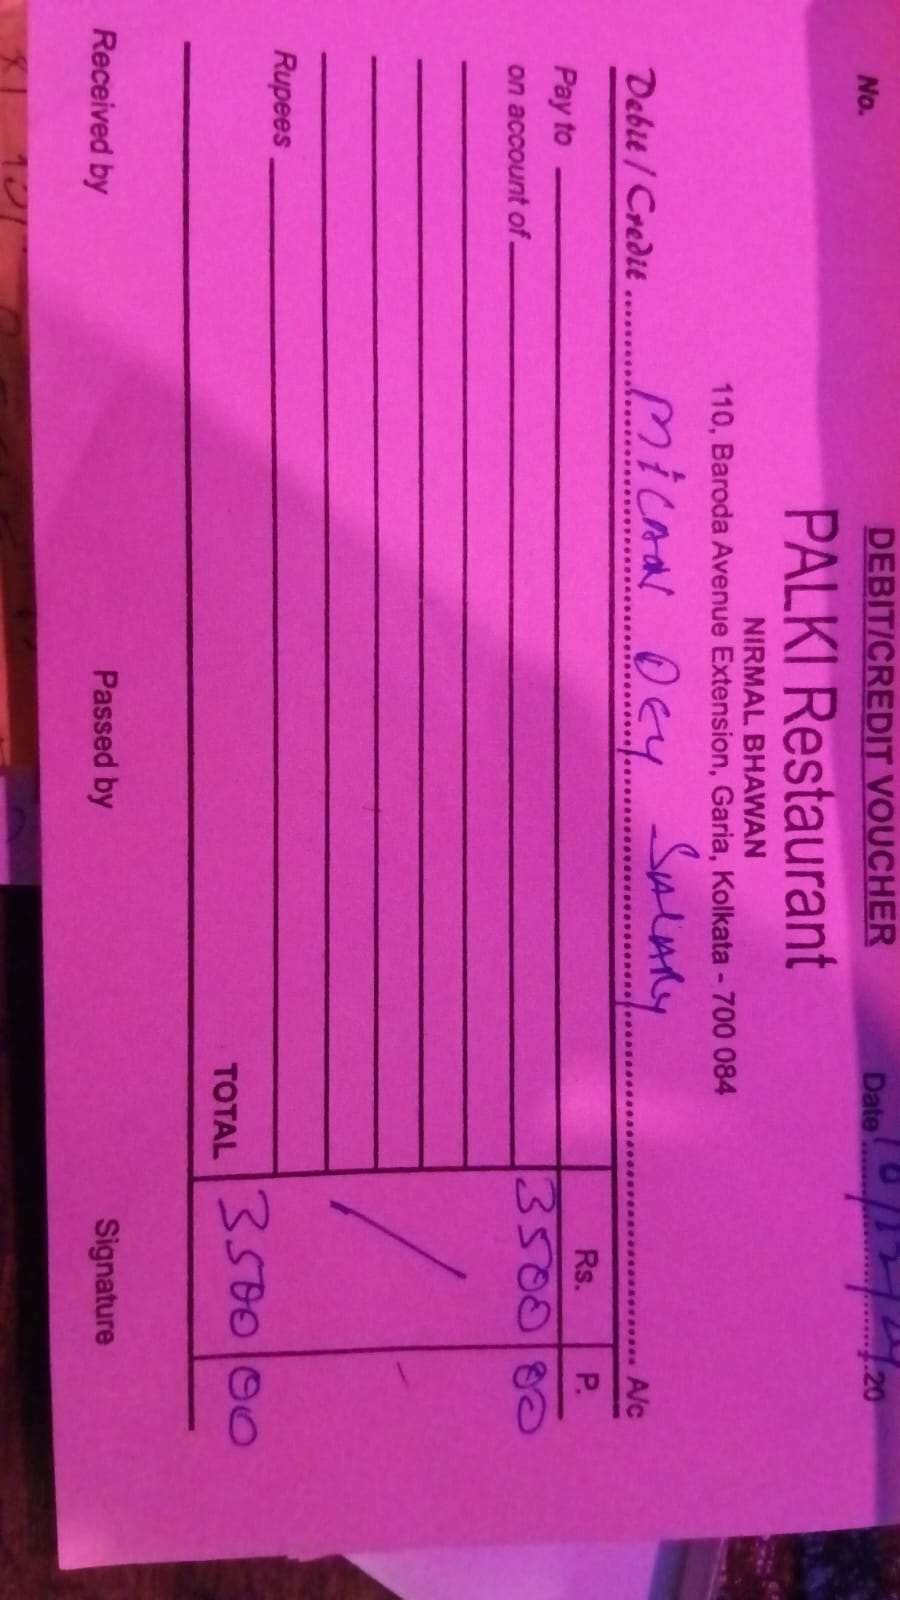 DEBIT/CREDIT VOUCHER
No.
PALKI Restaurant
Date 10/12/24 20
NIRMAL BHAWAN
110, Baroda Avenue Extension, Garia, Kolkata - 700 084
Debit / Credit MICAN DEY SALARY A/c
Rs. P.
Pay to 3500 00
on account of
Rupees
TOTAL 3500 00
Received by Passed by Signature